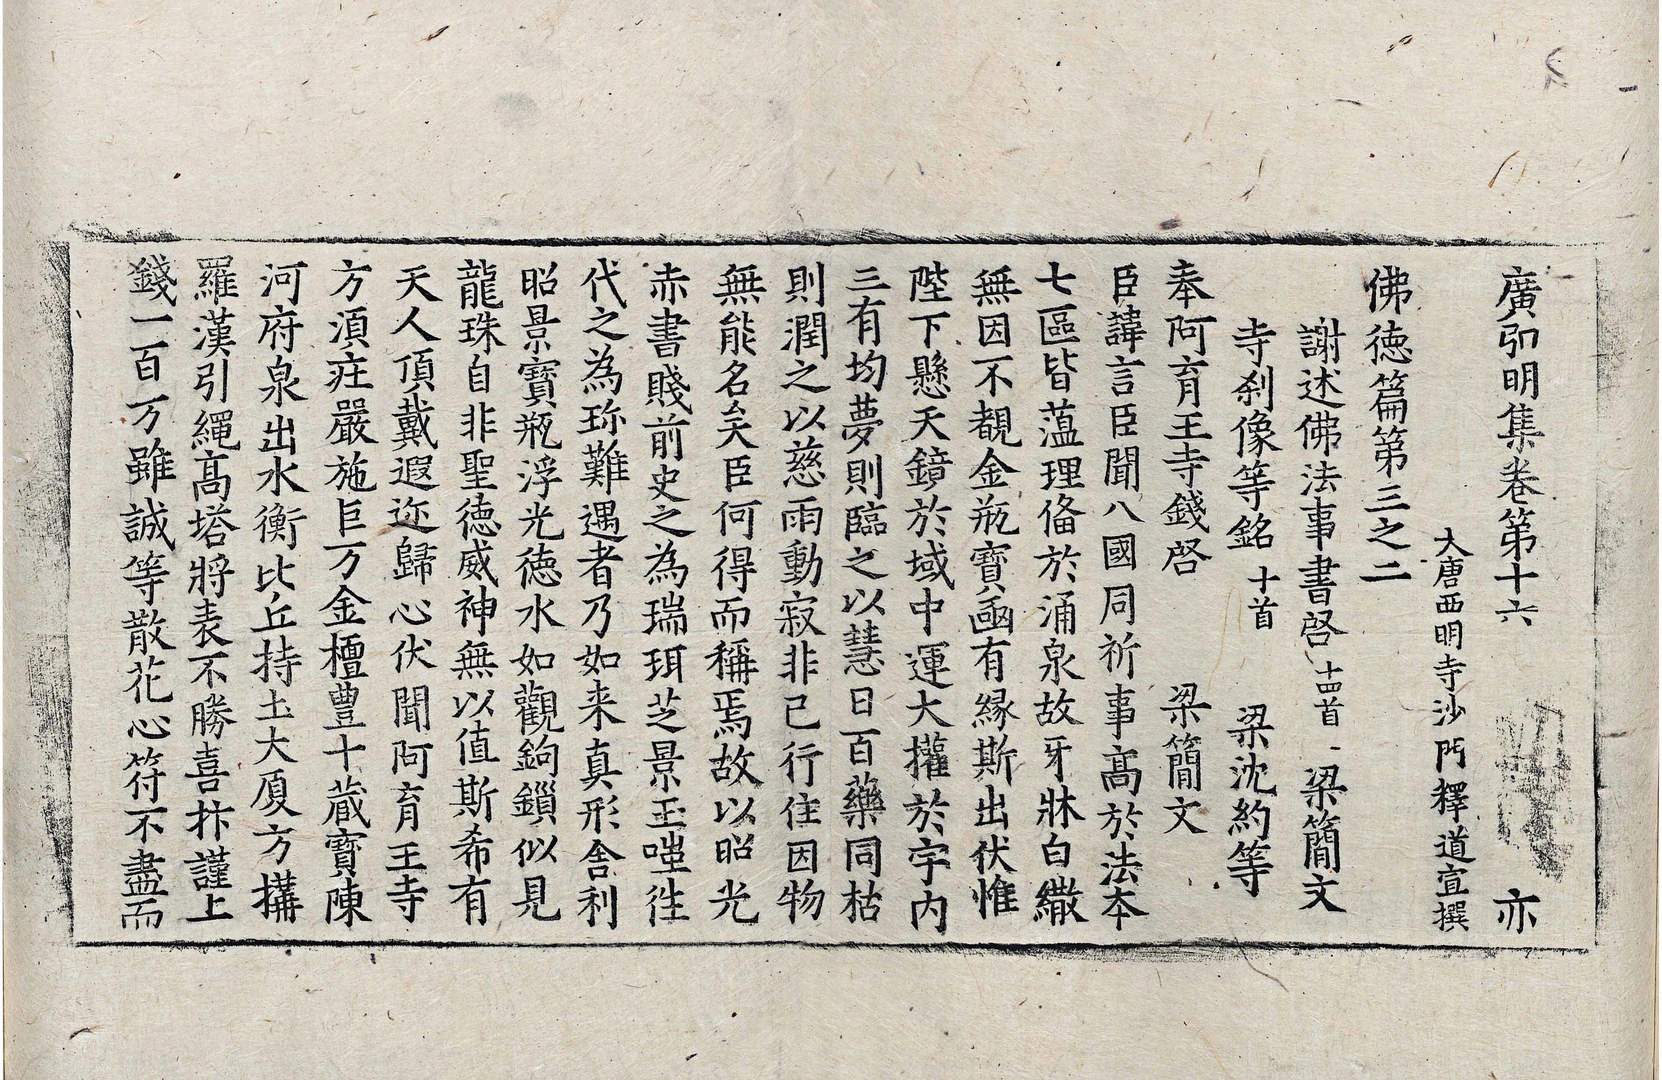 廣弘明集卷第十六 亦
大唐西明寺沙門釋道宣撰
佛德篇第三之二
謝述佛法事書啓十四首 梁簡文
寺刹像等銘十首 梁沈約等
奉阿育王寺錢啓 梁簡文
臣諱言臣聞八國同祈事髙於法本
七區皆薀理俻於涌泉故牙牀白繖
無因不覩金瓶寶函有縁斯出伏惟
陛下懸天鏡於域中運大攉於宇内
三有均夢則臨之以慧日百藥同枯
則潤之以慈雨動寂非已行住因物
無能名矣臣何得而稱焉故以昭光
赤書賤前史之為瑞珥芝景玉嗤徃
代之為珎難遇者乃如来真形舍利
昭景寶瓶浮光德水如觀鉤鎻似見
龍珠自非聖德威神無以值斯希有
天人頂戴遐迩歸心伏聞阿育王寺
方湏莊嚴施巨万金檀豊十藏寶陳
河府泉出水衡比丘持土大厦方搆
羅漢引繩髙塔將表不勝喜抃謹上
錢一百万雖誠等散花心符不盡而